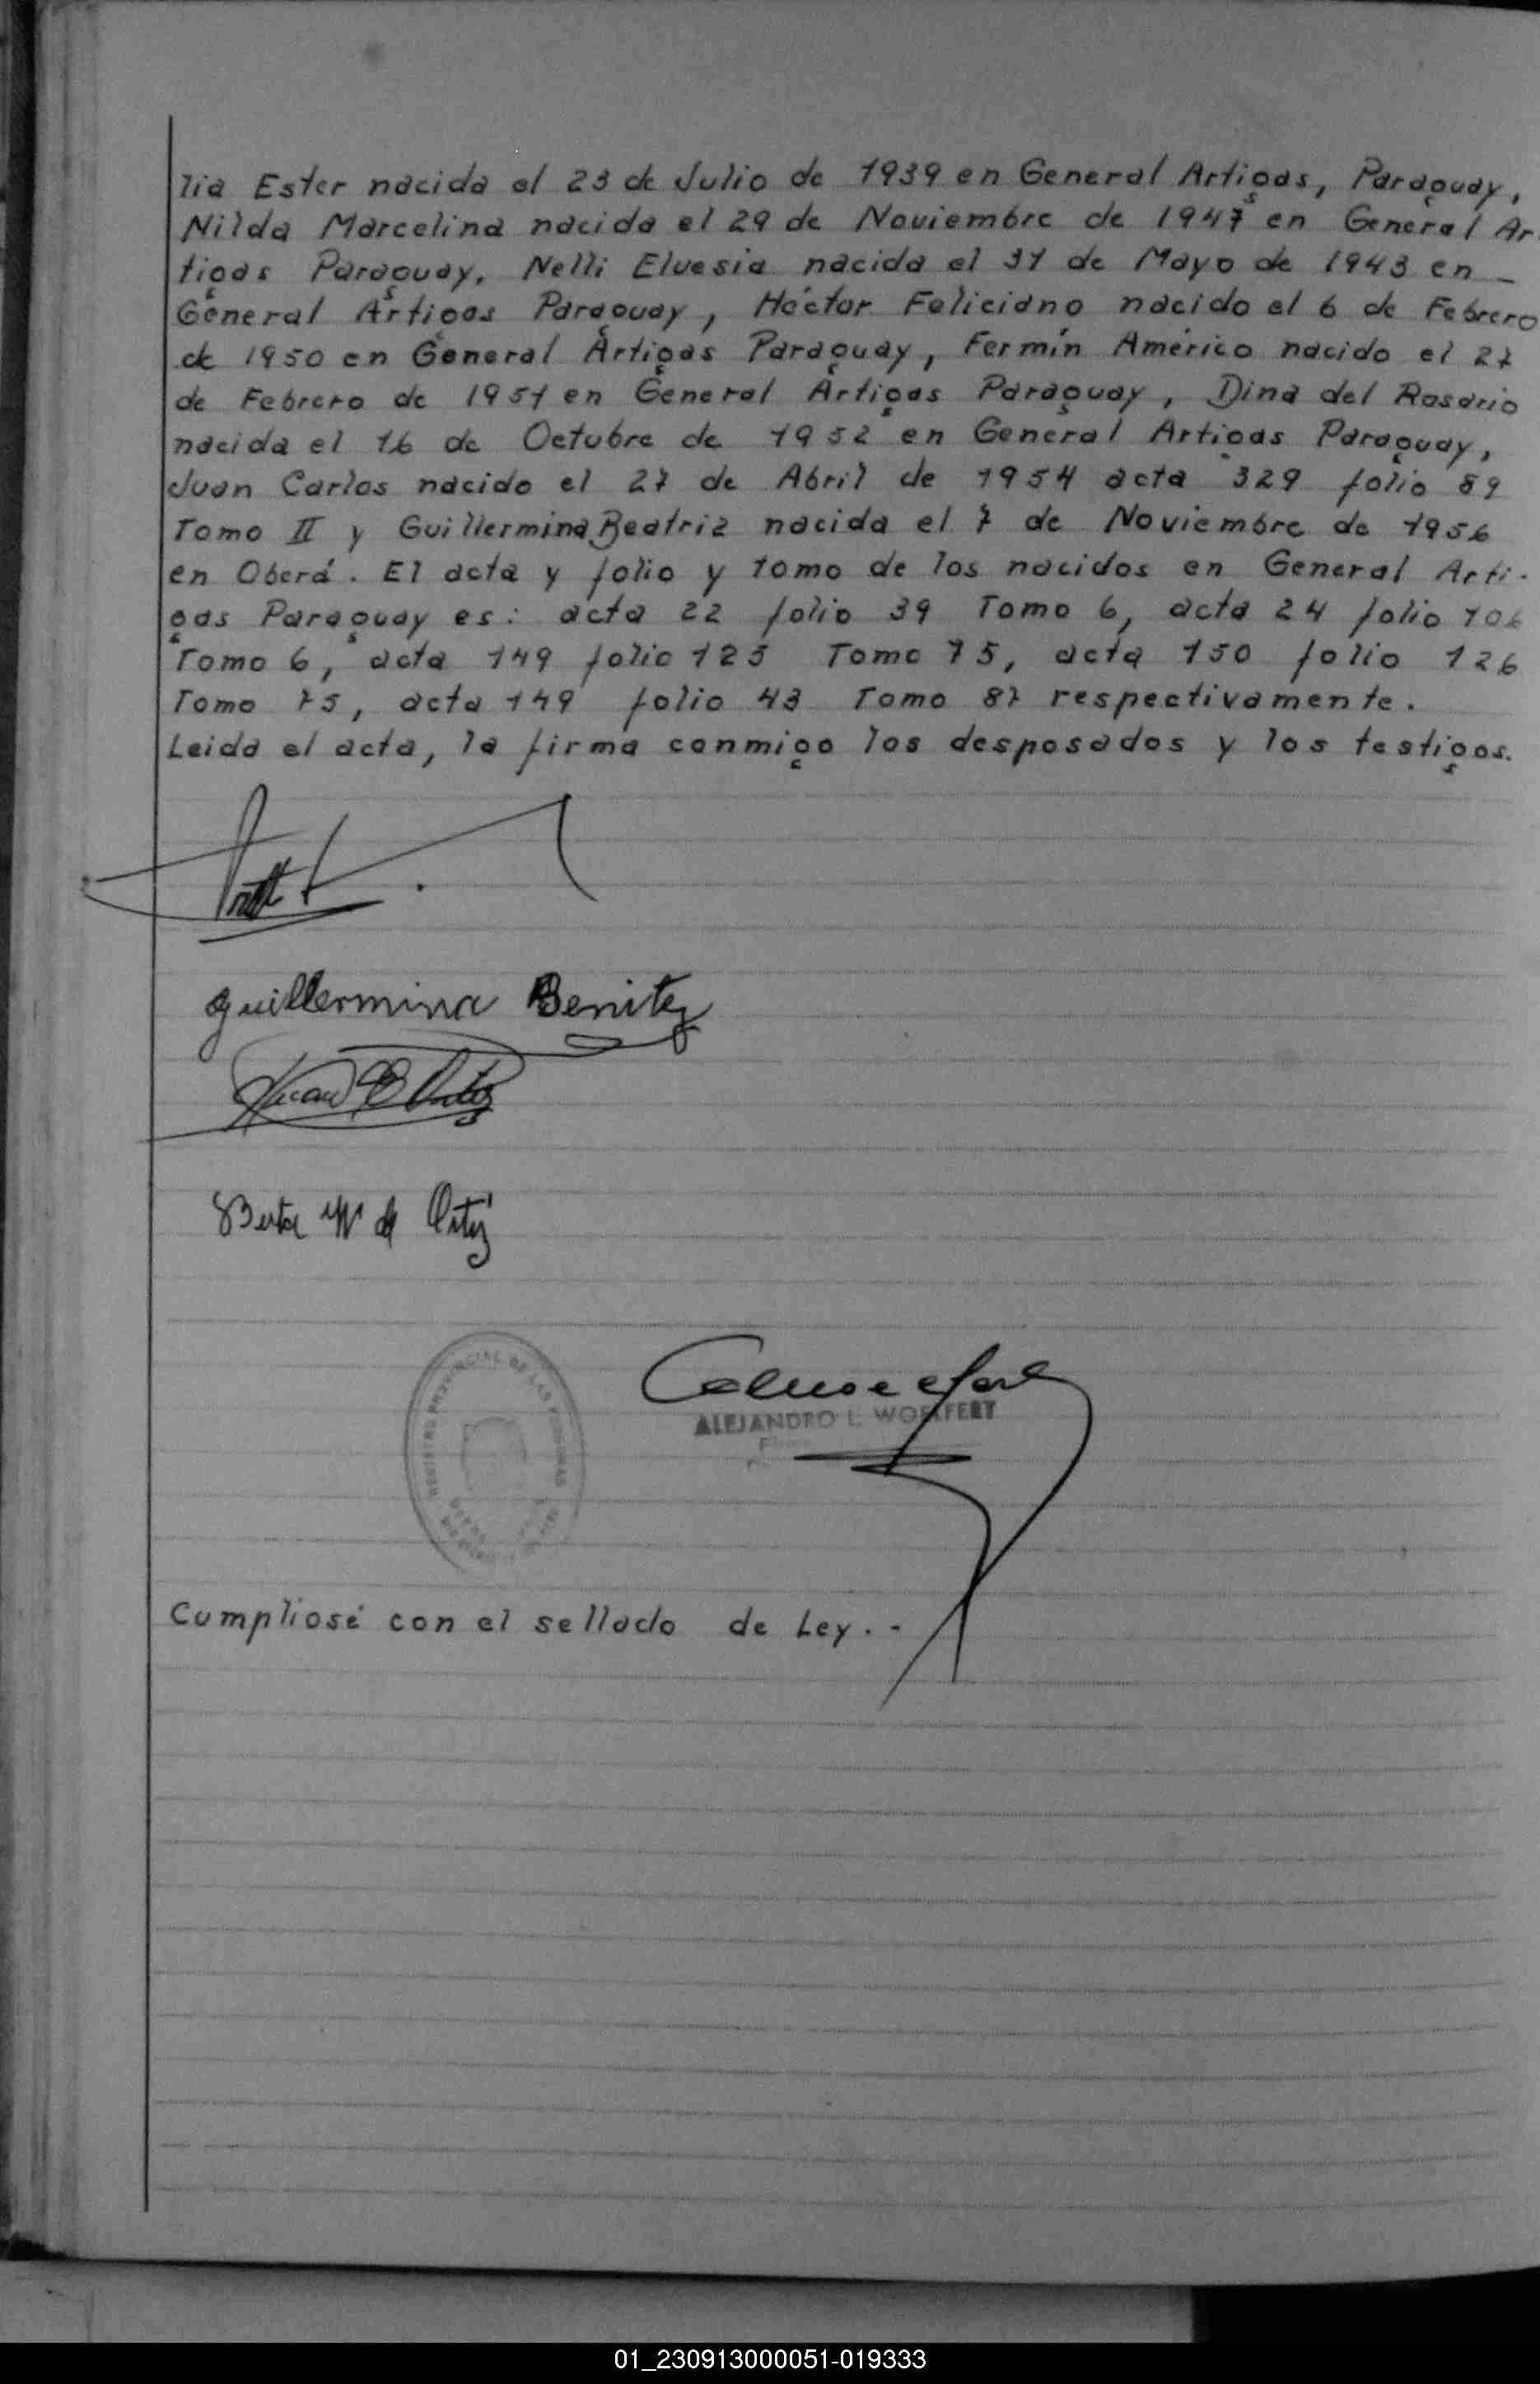 lia Ester nacida el 23 de Julio de 1939 en General Artigas, Paraguay,
Nilda Marcelina nacida el 29 de Noviembre de 1947 en General Ar
tigas Paraguay, Nelli Elvesia nacida el 31 de Mayo de 1943 en _
General Artigas Paraguay, Héctor Feliciano nacido el 6 de Febrero
de 1950 en General Artigas Paraguay, Fermín Américo nacido el 27
de Febrero de 1951 en General Artigas Paraguay, Dina del Rosario
nacida el 16 de Octubre de 1952 en General Artigas Paraguay,
Juan Carlos nacido el 27 de Abril de 1954 acta 329 folio 89
Tomo II y Guillermina Beatriz nacida el 7 de Noviembre de 1956
en Oberá. El acta y folio y tomo de los nacidos en General Arti-
gas Paraguay es: acta 22 folio 39 Tomo 6, acta 24 folio 106
Tomo 6, acta 149 folio 125 Tomo 75, acta 150 folio 126
Tomo 75, acta 149 folio 43 Tomo 87 respectivamente.
Leida el acta, la firma conmigo los desposados y los testigos.
Guillermina Benitez
Juan Ortiz
Berta M de Ortiz
REGISTRO PROVINCIAL DE LAS PERSONAS
ALEJANDRO L. WOLFERT
Cumpliosé con el sellado de Ley. -
01_230913000051-019333